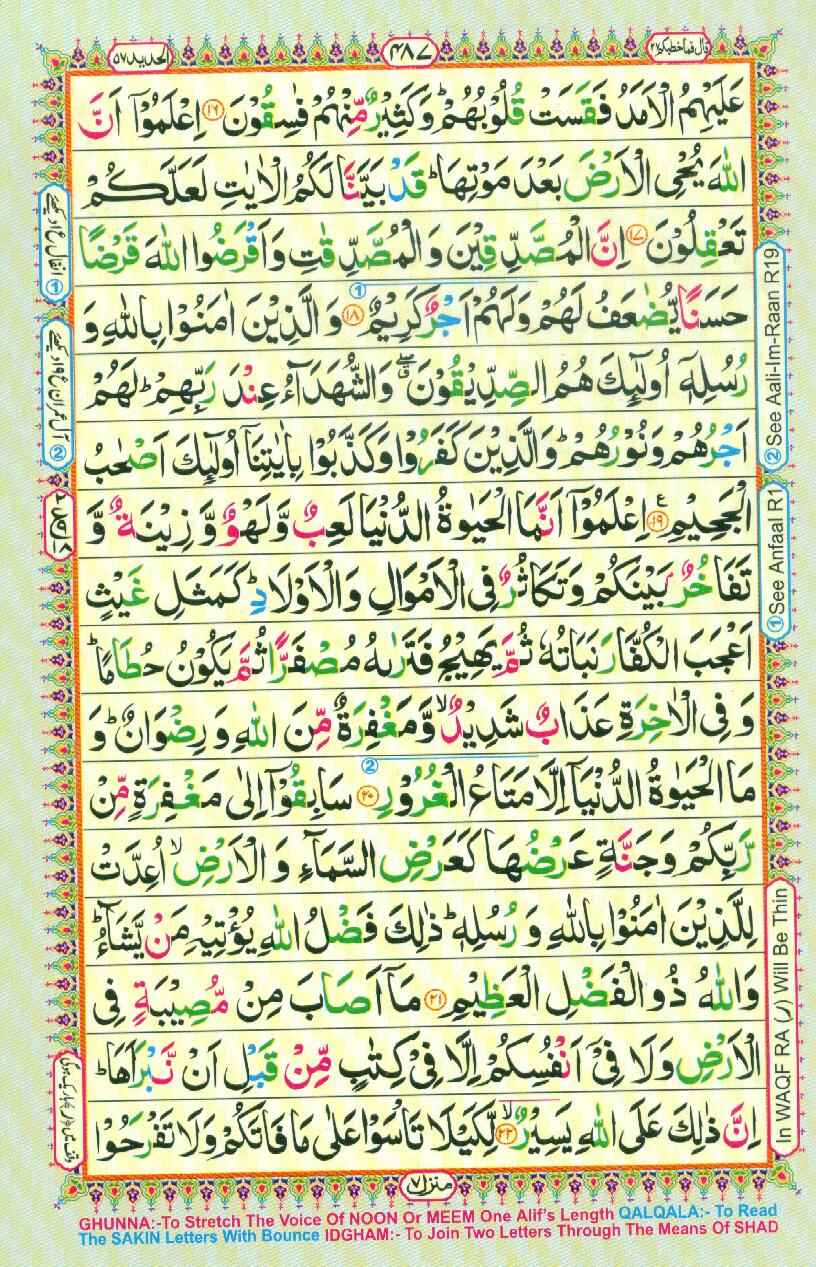 قال فما خطبكم ٢٧
٤٨٧
الحدید ٥٧
عَلَيْهِمُ الْاَمَدُ فَقَسَتْ قُلُوْبُهُمْ ؕ وَكَثِيْرٌ مِّنْهُمْ فٰسِقُوْنَ ﴿۱۶﴾ اِعْلَمُوْۤا اَنَّ
اللّٰهَ يُحْىِ الْاَرْضَ بَعْدَ مَوْتِهَا ؕ قَدْ بَيَّنَّا لَكُمُ الْاٰيٰتِ لَعَلَّكُمْ
تَعْقِلُوْنَ ﴿۱۷﴾ اِنَّ الْمُصَّدِّقِيْنَ وَالْمُصَّدِّقٰتِ وَاَقْرَضُوا اللّٰهَ قَرْضًا
حَسَنًا يُّضٰعَفُ لَهُمْ وَلَهُمْ اَجْرٌ كَرِيْمٌ ①﴿۱۸﴾ وَالَّذِيْنَ اٰمَنُوْا بِاللّٰهِ وَ
رُسُلِهٖۤ اُولٰٓئِكَ هُمُ الصِّدِّيْقُوْنَ ۖۗ وَالشُّهَدَآءُ عِنْدَ رَبِّهِمْ ؕ لَهُمْ
اَجْرُهُمْ وَنُوْرُهُمْ ؕ وَالَّذِيْنَ كَفَرُوْا وَكَذَّبُوْا بِاٰيٰتِنَاۤ اُولٰٓئِكَ اَصْحٰبُ
الْجَحِيْمِ ﴿۱۹﴾ع اِعْلَمُوْۤا اَنَّمَا الْحَيٰوةُ الدُّنْيَا لَعِبٌ وَّلَهْوٌ وَّ زِيْنَةٌ وَّ
تَفَاخُرٌۢ بَيْنَكُمْ وَتَكَاثُرٌ فِى الْاَمْوَالِ وَالْاَوْلَادِ ؕ كَمَثَلِ غَيْثٍ
اَعْجَبَ الْكُفَّارَ نَبَاتُهٗ ثُمَّ يَهِيْجُ فَتَرٰىهُ مُصْفَرًّا ثُمَّ يَكُوْنُ حُطَامًا ؕ
وَ فِى الْاٰخِرَةِ عَذَابٌ شَدِيْدٌ ۙ وَّمَغْفِرَةٌ مِّنَ اللّٰهِ وَ رِضْوَانٌ ؕ وَ
مَا الْحَيٰوةُ الدُّنْيَاۤ اِلَّا مَتَاعُ الْغُرُوْرِ ②﴿۲۰﴾ سَابِقُوْۤا اِلٰى مَغْفِرَةٍ مِّنْ
رَّبِّكُمْ وَجَنَّةٍ عَرْضُهَا كَعَرْضِ السَّمَآءِ وَ الْاَرْضِ ۙ اُعِدَّتْ
لِلَّذِيْنَ اٰمَنُوْا بِاللّٰهِ وَ رُسُلِهٖ ؕ ذٰلِكَ فَضْلُ اللّٰهِ يُؤْتِيْهِ مَنْ يَّشَآءُ ؕ
وَاللّٰهُ ذُو الْفَضْلِ الْعَظِيْمِ ﴿۲۱﴾ مَاۤ اَصَابَ مِنْ مُّصِيْبَةٍ فِى
الْاَرْضِ وَلَا فِىْۤ اَنْفُسِكُمْ اِلَّا فِىْ كِتٰبٍ مِّنْ قَبْلِ اَنْ نَّبْرَاَهَا ؕ
اِنَّ ذٰلِكَ عَلَى اللّٰهِ يَسِيْرٌ ۙ﴿۲۲﴾ لِّكَيْلَا تَاْسَوْا عَلٰى مَا فَاتَكُمْ وَلَا تَفْرَحُوْا
② See Aali-Im-Raan R19
① See Anfaal R1
In WAQF RA (ر) Will Be Thin
① انفال ر۱ دیکھیے
② آل عمران ر۱۹ دیکھیے
منزل ٧
GHUNNA:-To Stretch The Voice Of NOON Or MEEM One Alif's Length QALQALA:- To Read
The SAKIN Letters With Bounce IDGHAM:- To Join Two Letters Through The Means Of SHAD